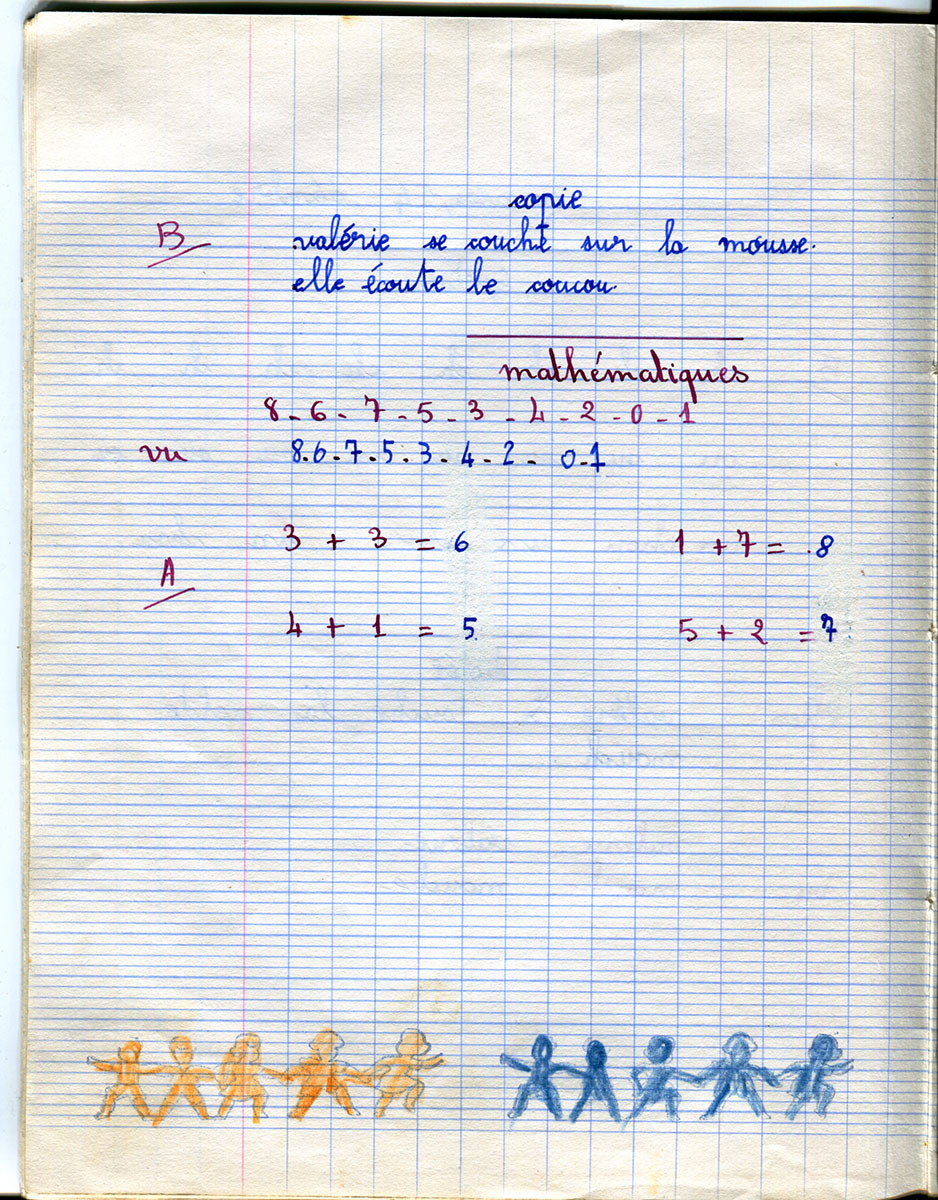 copie
B valérie se couche sur la mousse.
elle écoute le coucou.
mathématiques
8 - 6 - 7 - 5 - 3 - 4 - 2 - 0 - 1
vu 8.6.7.5.3.4.2. 0.1
3 + 3 = 6 1 + 7 = 8
A
4 + 1 = 5 5 + 2 = 7